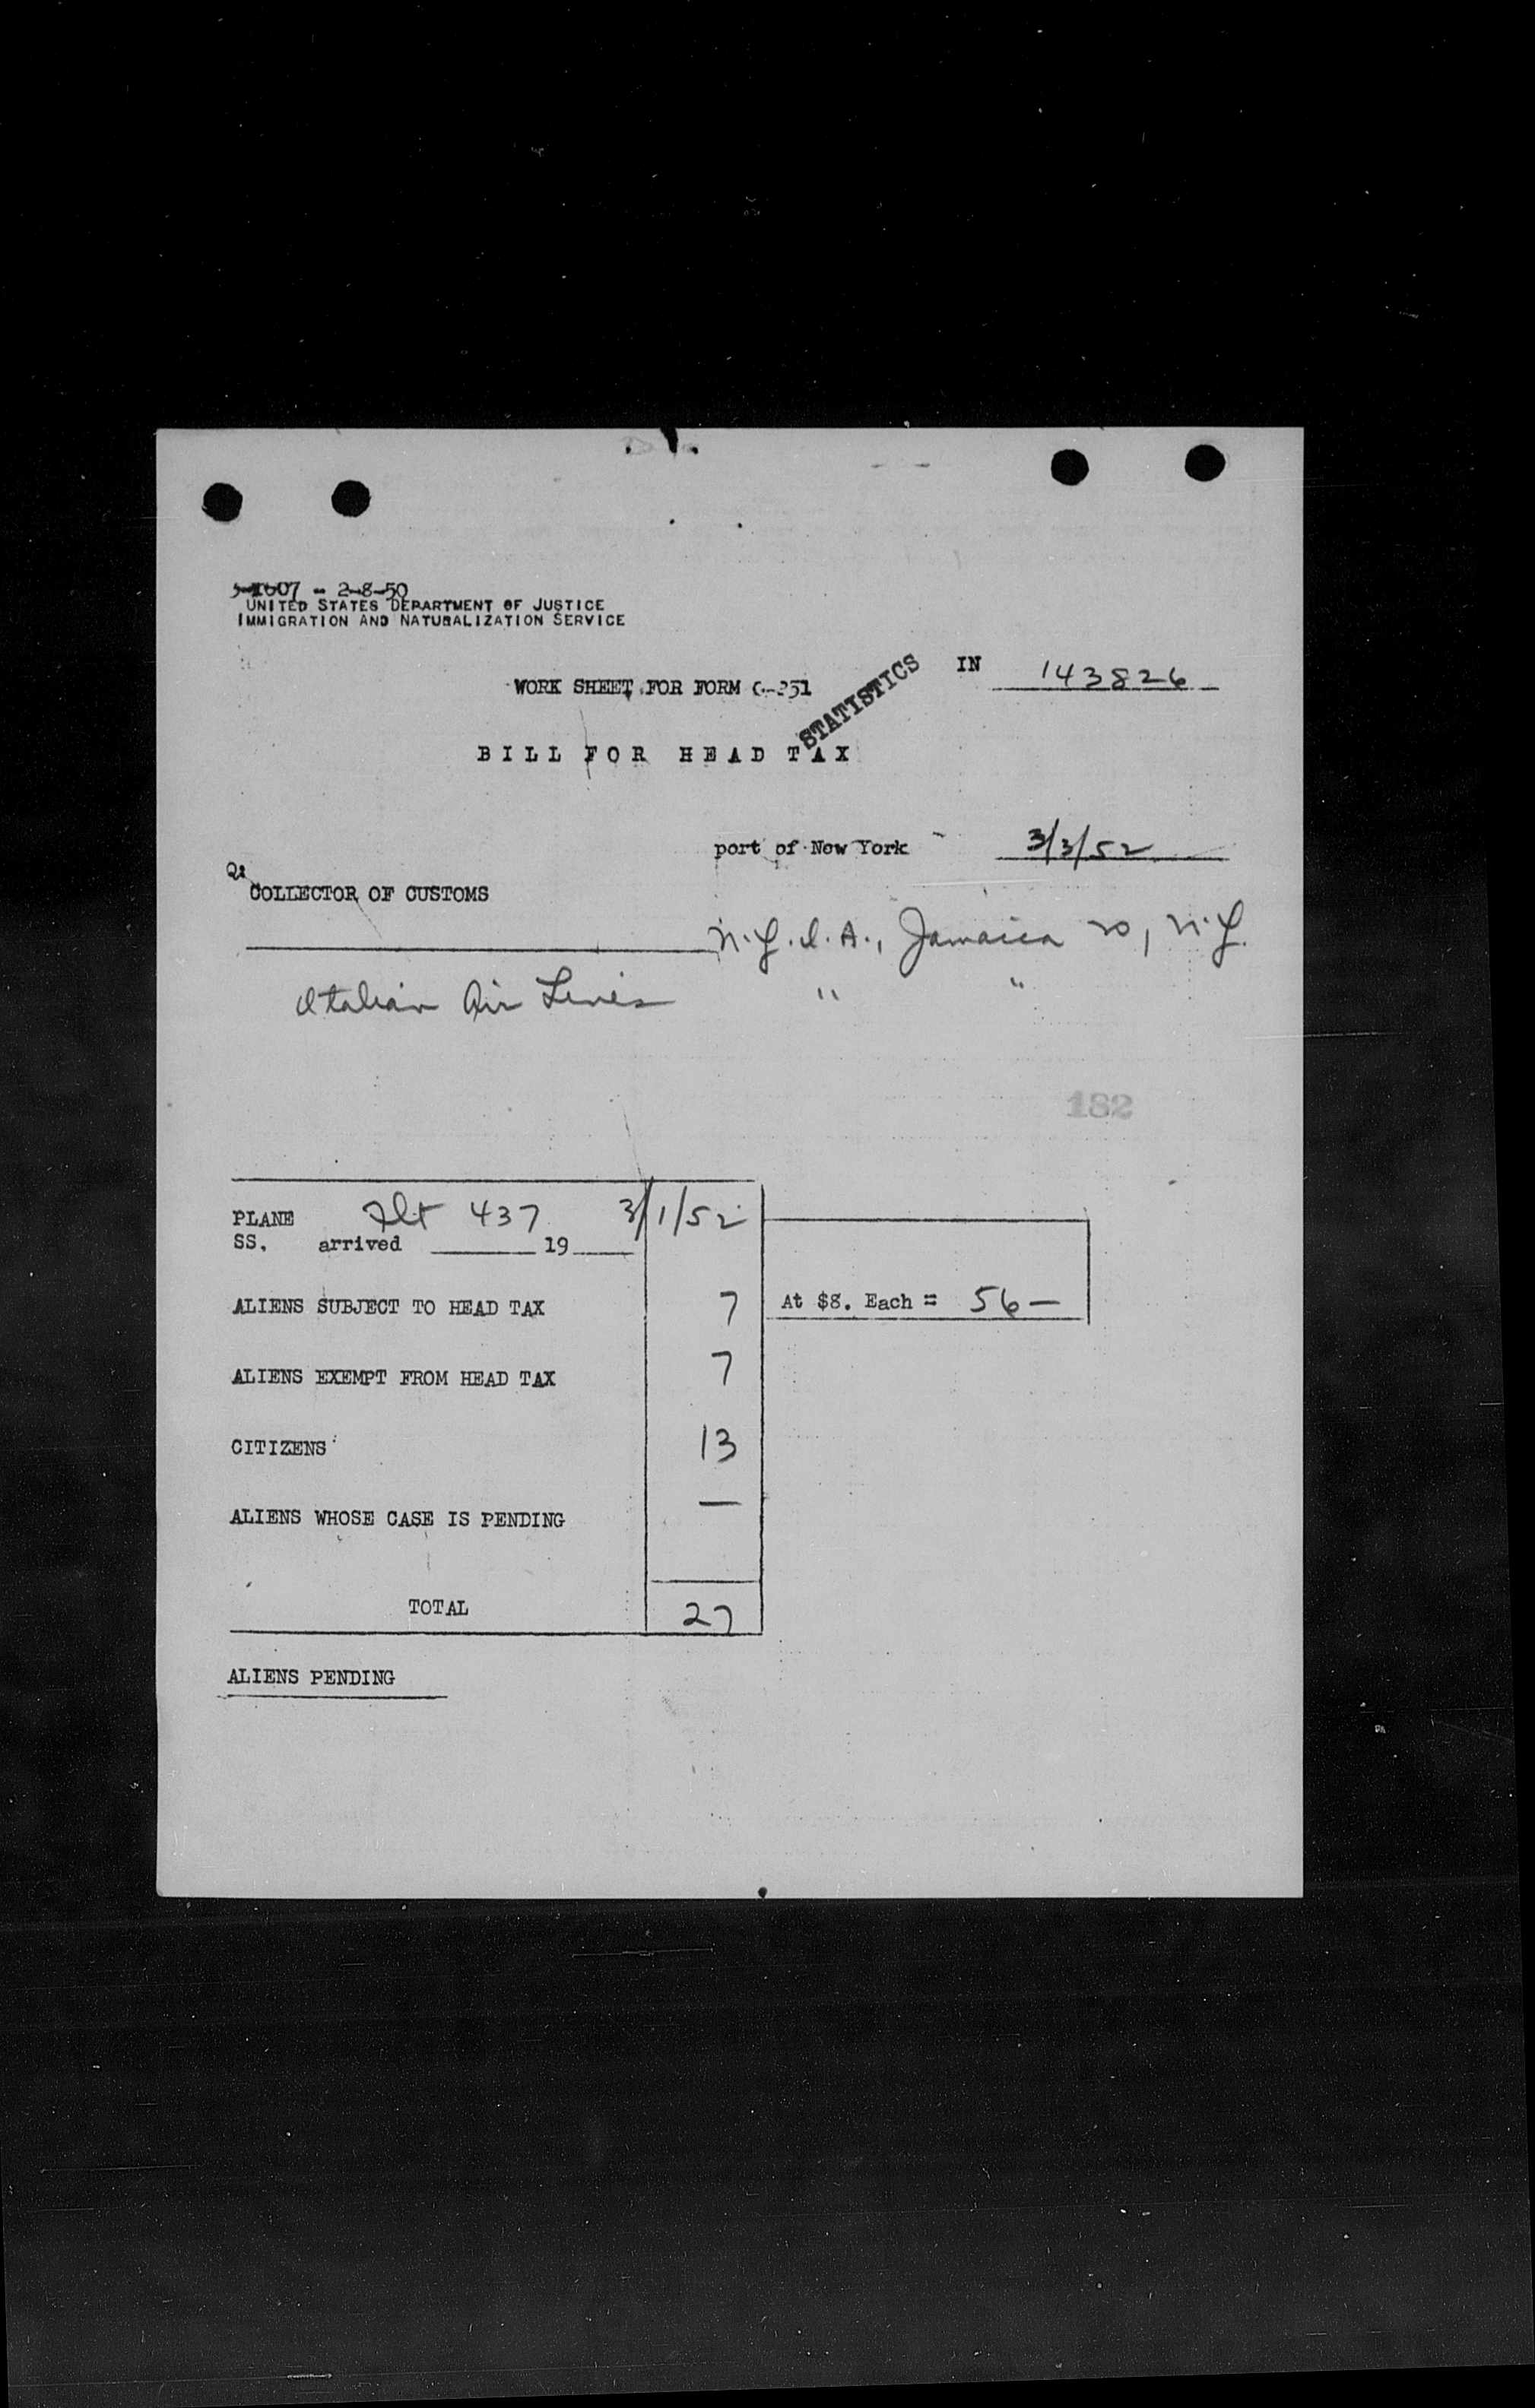 -1607 - 2-8-50
UNITED STATES DEPARTMENT OF JUSTICE
IMMIGRATION AND NATURALIZATION SERVICE
WORK SHEET FOR FORM G-251
STATISTICS
IN 143826
BILL FOR HEAD TAX
port of New York 3/3/52
COLLECTOR OF CUSTOMS
N.Y.I.A., Jamaica 20, N.Y.
Italian Air Lines " "
182
PLANE Flt 437 3/1/52
SS. arrived ______ 19____
ALIENS SUBJECT TO HEAD TAX 7 At $8. Each = 56 —
ALIENS EXEMPT FROM HEAD TAX 7
CITIZENS 13
ALIENS WHOSE CASE IS PENDING —
TOTAL 27
ALIENS PENDING